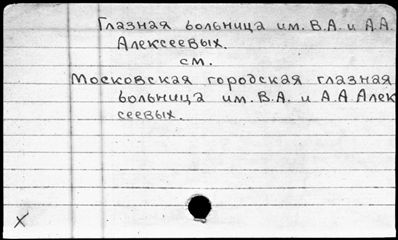 Глазная больница им. В.А. и А.А.
Алексеевых.
см.
Московская городская глазная
больница им. В.А. и А.А Алек
сеевых.
X